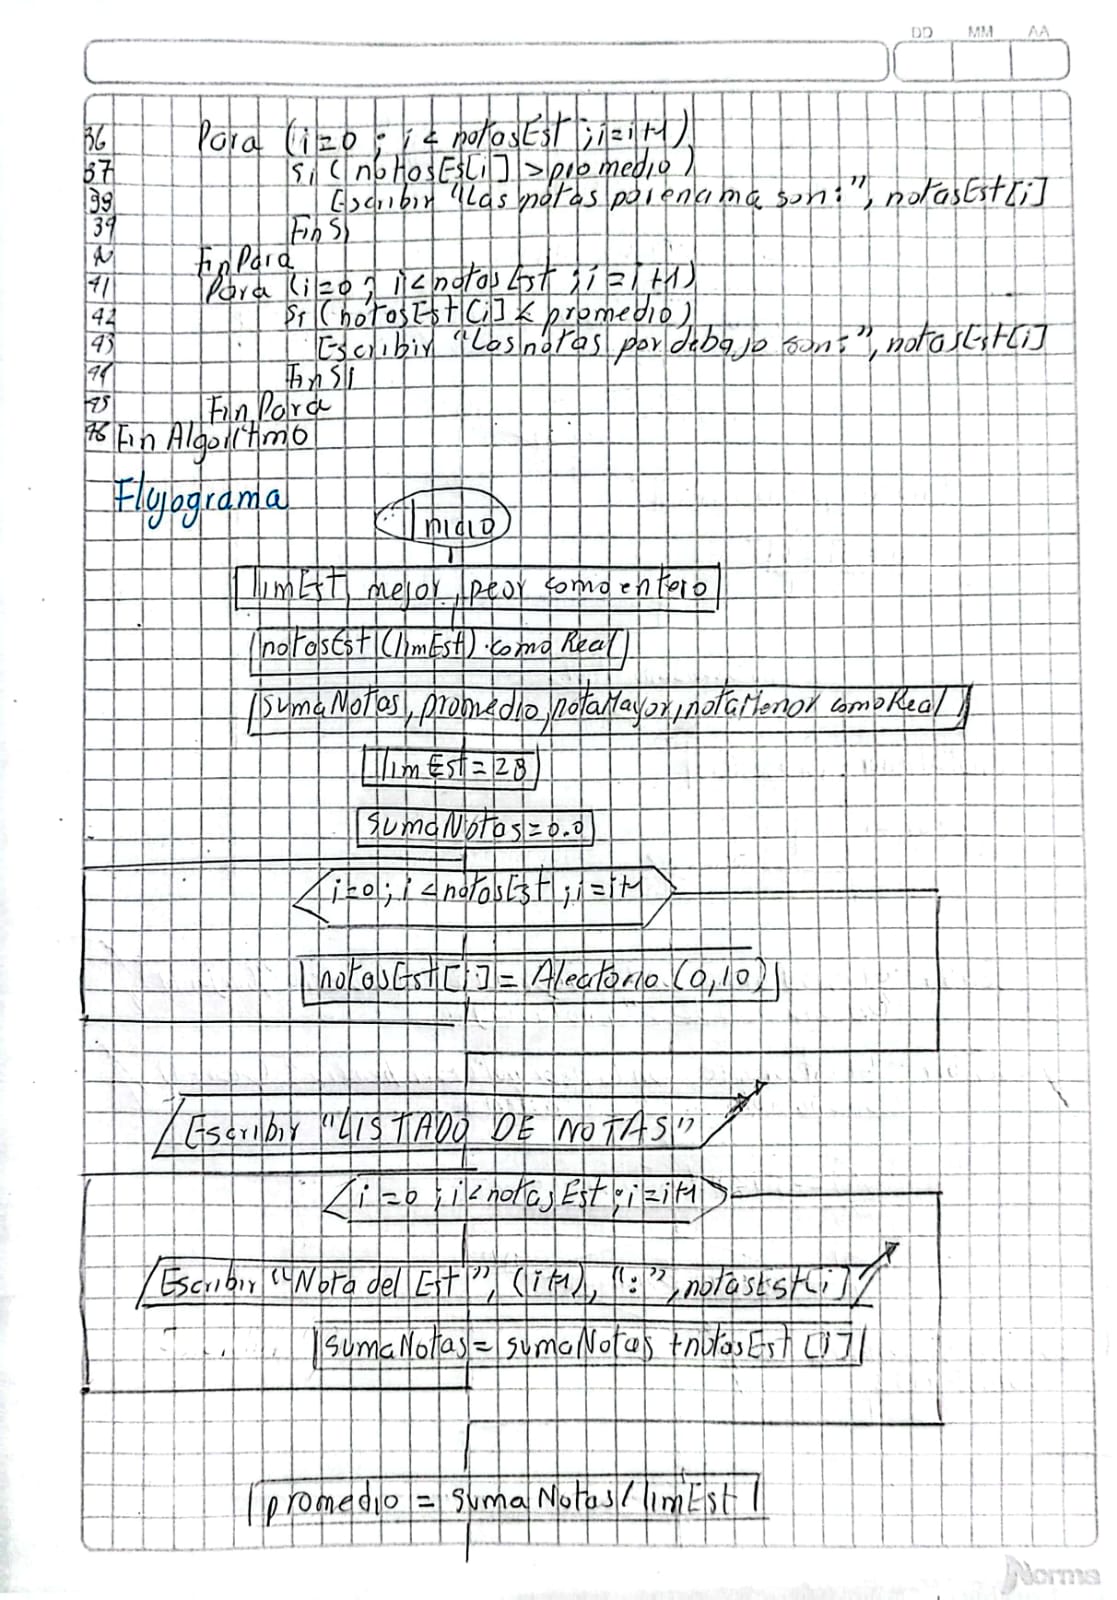 DD MM AA
36 Para (i=0 ; i < notasEst ; i=i+1)
37 Si (notasEs[i] > promedio)
38 Escribir "Las notas por encima son:", notasEst[i]
39 FinSi
FinPara
41 Para (i=0 ; i < notasEst ; i=i+1)
42 Si (notasEst[i] < promedio)
43 Escribir "Las notas por debajo son:", notasEst[i]
44 FinSi
45 FinPara
46 FinAlgoritmo
Flujograma
Inicio
limEst, mejor, peor como entero
notasEst(limEst) como Real
sumaNotas, promedio, notaMayor, notaMenor como Real
limEst=28
sumaNotas=0.0
i=0 ; i < notasEst ; i=i+1
notasEst[i] = Aleatorio (0,10)
Escribir "LISTADO DE NOTAS"
i=0 ; i < notasEst ; i=i+1
Escribir "Nota del Est", (i+1), ":", notasEst[i]
sumaNotas = sumaNotas + notasEst [i]
promedio = sumaNotas / limEst
Norma